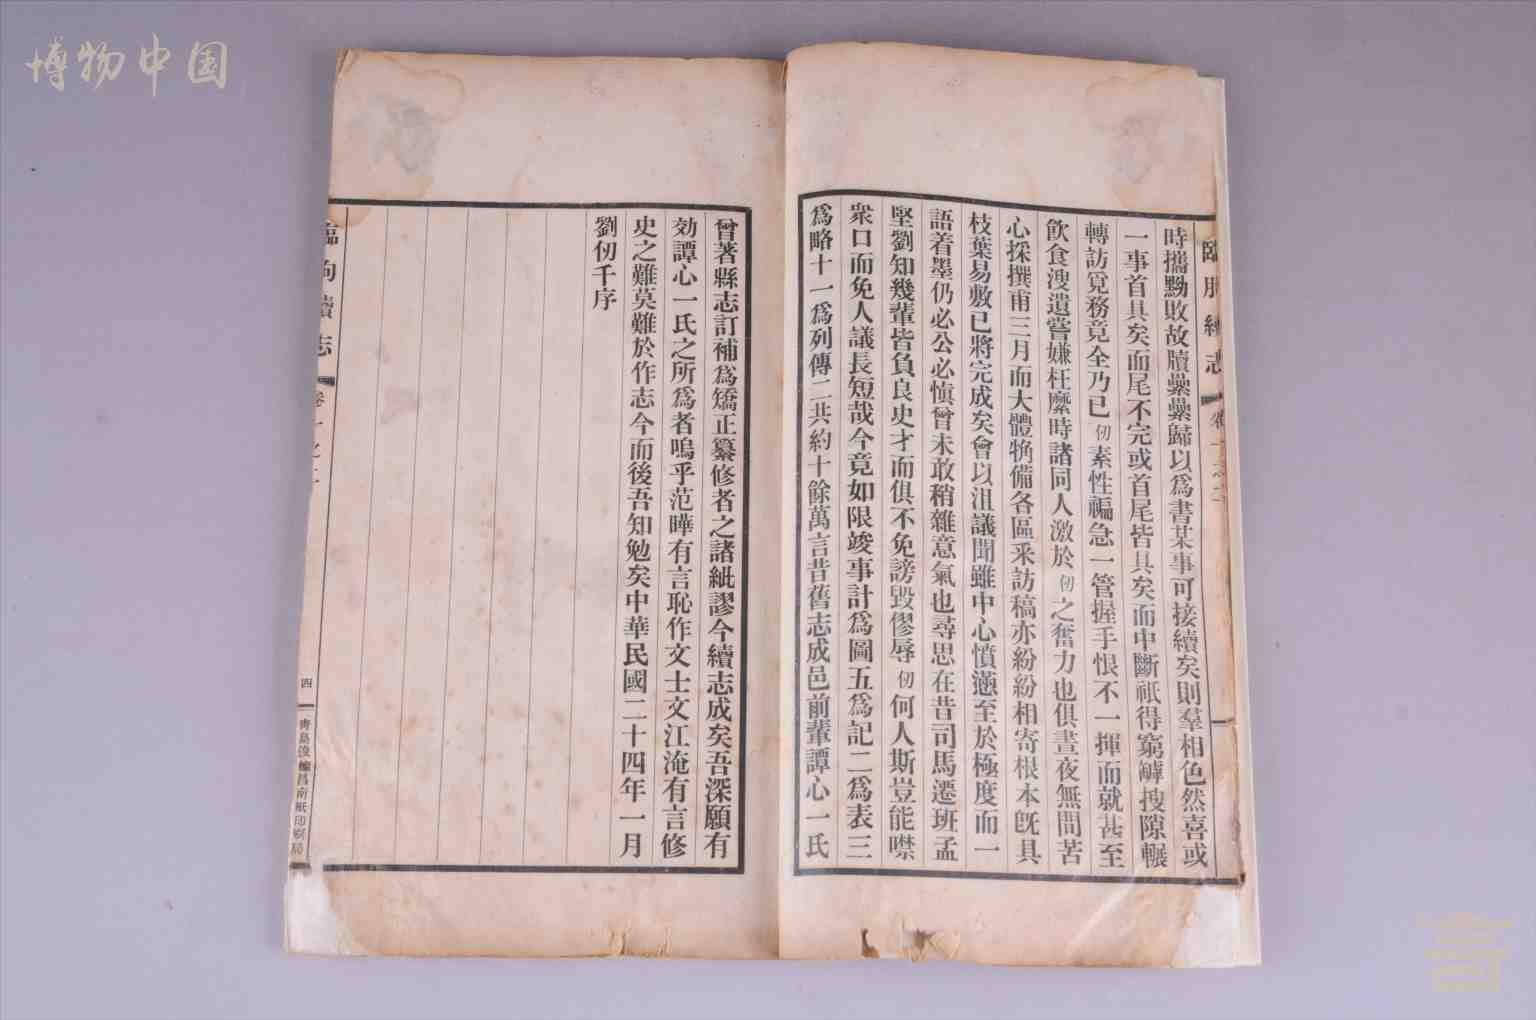 博物中国
臨朐續志
卷一之二
時攜黝敗故牘纍纍歸以爲書某事可接續矣則羣相色然喜或
一事首具矣而尾不完或首尾皆具矣而中斷祇得窮罅搜隙輾
轉訪覓務竟全乃已仞素性褊急一管握手恨不一揮而就甚至
飲食溲遺嘗嫌枉縻時諸同人激於仞之奮力也俱晝夜無間苦
心採撰甫三月而大體觕備各區采訪稿亦紛紛相寄根本旣具
枝葉易敷已將完成矣會以沮議聞雖中心憤懣至於極度而一
語着墨仍必公必愼曾未敢稍雜意氣也尋思在昔司馬遷班孟
堅劉知幾輩皆負良史才而俱不免謗毀僇辱仞何人斯豈能噤
衆口而免人議長短哉今竟如限竣事計爲圖五爲記二爲表三
爲略十一爲列傳二共約十餘萬言昔舊志成邑前輩譚心一氏
曾著縣志訂補爲矯正纂修者之諸紕謬今續志成矣吾深願有
効譚心一氏之所爲者嗚乎范曄有言恥作文士文江淹有言修
史之難莫難於作志今而後吾知勉矣中華民國二十四年一月
劉仞千序
臨朐續志
卷一之二
四
青島俊德昌南紙印刷局